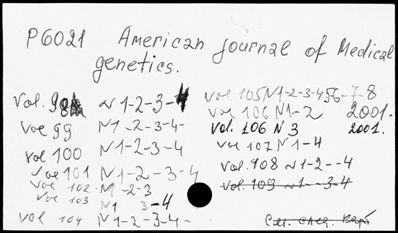 P6021 American journal of Medical
genetics.
vol. 98 N1-2-3-4
vol 99 N1-2-3-4-
vol 100 N1-2-3-4
vol 101 N1-2-3-4
vol 102 N1-2-3
vol 103 N1 3-4
vol 104 N1-2-3-4-
vol 105 N1-2-3-4 56-7-8
vol 106 N1-2 2001.
vol. 106 N 3 2001.
vol 107 N1-4
vol. 108 N1-2--4
vol. 109 N1--3-4
См. след. карт